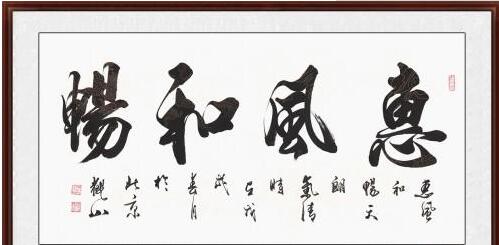 惠風和暢
惠風
和
暢天
朗
氣清
時
春月
於
北京
觀山